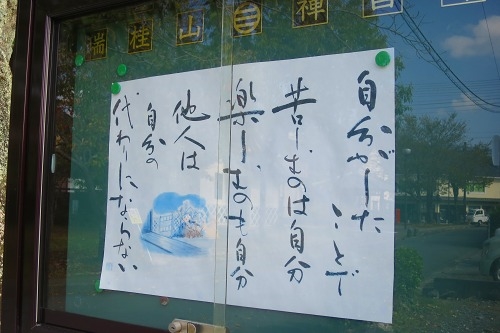 瑞桂山㊂禅昌
自分がした
ことで
苦しむのは自分
楽しむのも自分
他人は
自分の
代わりにならない